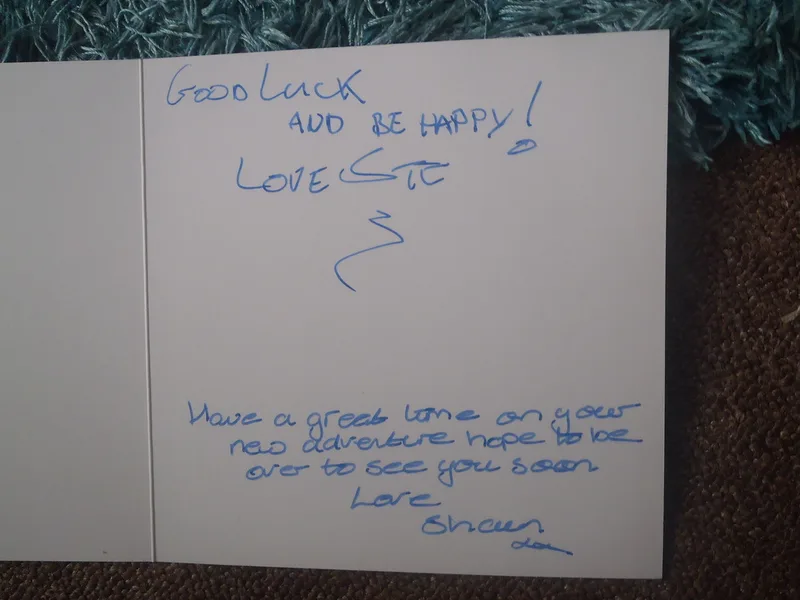 GOOD LUCK
AND BE HAPPY!
LOVE STE
Have a great time on your
new adventure hope to be
over to see you soon
Love
Shaun